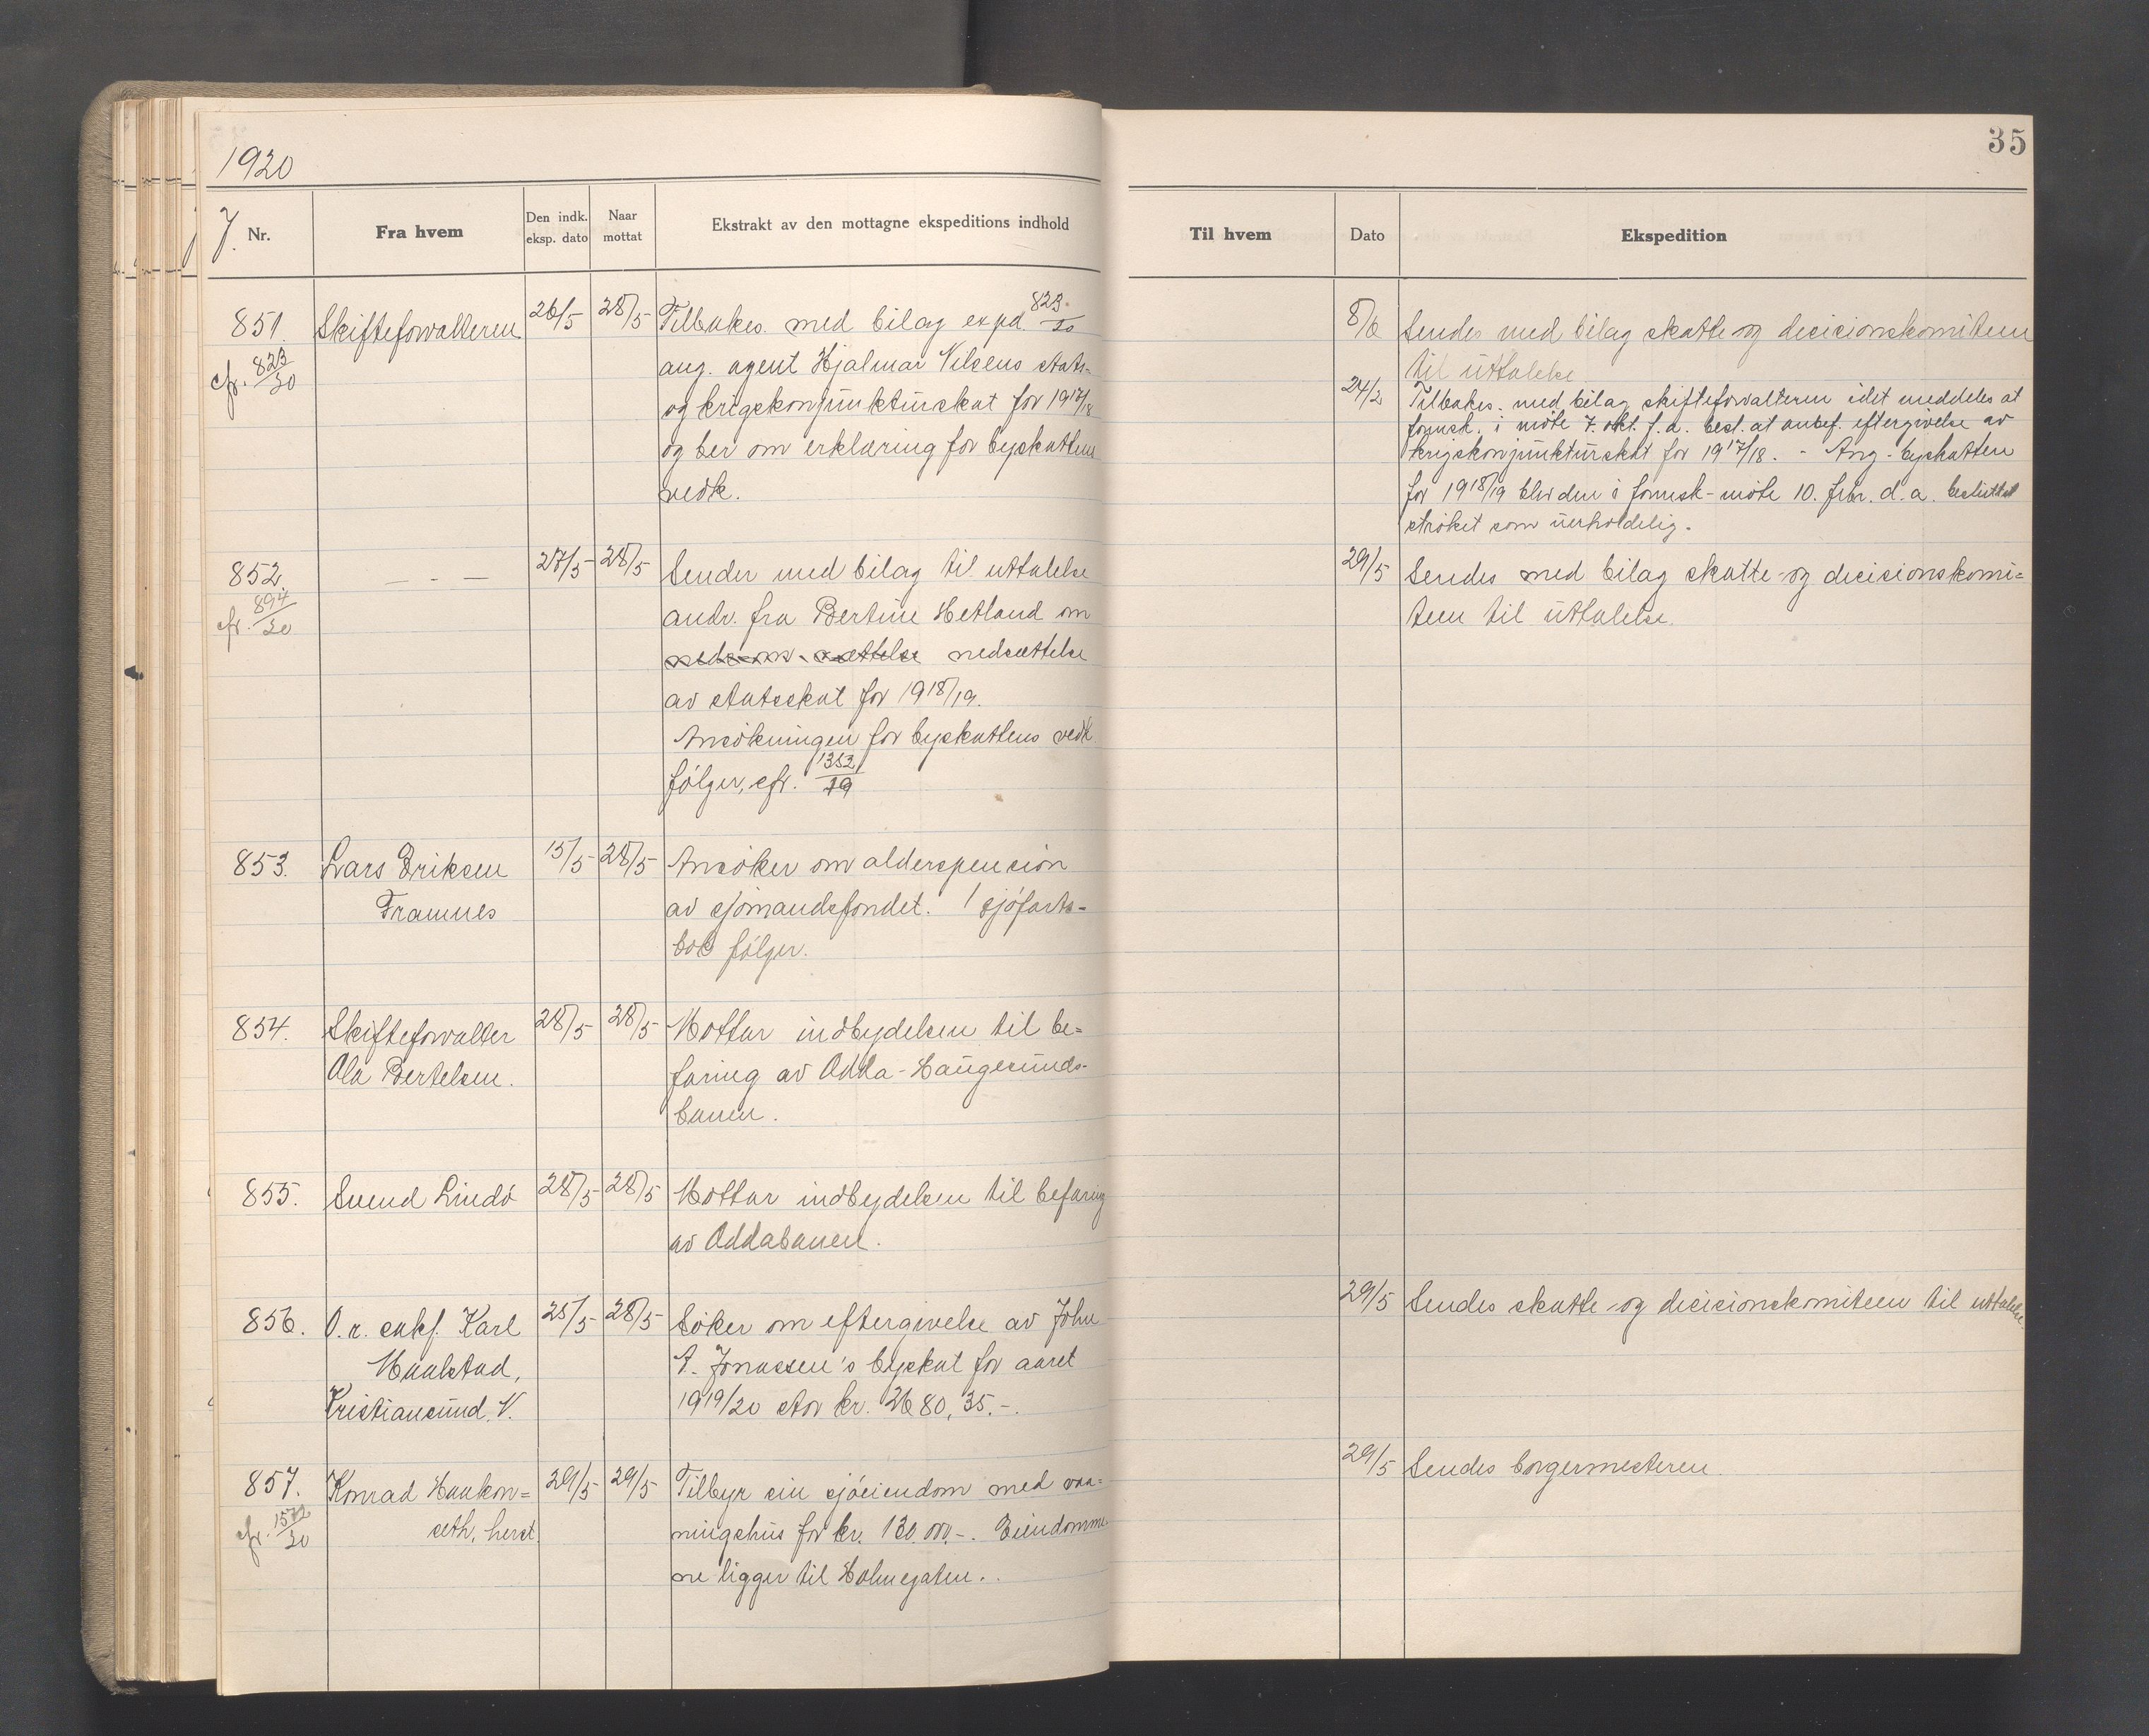 1920
35
J. Nr.
Fra hvem
Den indk. eksp. dato
Naar mottat
Ekstrakt av den mottagne ekspeditions indhold
Til hvem
Dato
Ekspedition
851. Skifteforvalteren 26/5 28/5 Tilbakes. med bilag expd. 823/20
cfr. 823/20
ang. agent Hjalmar Nilsens stats-
og krigskonjunkturskat for 1917/18
og ber om erklæring for byskattens
vedk.
8/6 Sendes med bilag skatte- og decisionskomiteen
til uttalelse
24/2 Tilbakes. med bilag skifteforvalteren idet meddeles at
formsk. i møte 7. okt. f.a. besl. at anbef. eftergivelse av
krigskonjunkturskat for 1917/18. - Ang. byskatten
for 1918/19 blev den i formsk-møte 10. febr. d.a. besluttet
strøket som uerholdelig.
852. — - — 27/5 28/5 Sender med bilag til uttalelse
cfr. 894/20
andr. fra Bertine Hetland om
nedsættelse
av statsskat for 1918/19.
Ansøkningen for byskattens vedk.
følger, cfr. 1352/19
29/5 Sendes med bilag skatte- og decisionskomi=
teen til uttalelse.
853. Lars Eriksen 15/5 28/5 Ansøker om alderspension
Framnes av sjømandsfondet. 1 sjøfarts-
bok følger.
854. Skifteforvalter 28/5 28/5 Mottar indbydelsen til be=
Ola Bertelsen. faring av Odda-Haugesunds-
banen.
855. Svend Lindø 28/5 28/5 Mottar indbydelsen til befaring
av Oddabanen.
856. O.r. sakf. Karl 25/5 28/5 Søker om eftergivelse av John
Maalstad, A. Jonassen's byskat for aaret
Kristiansund. N. 1919/20 stor kr. 2680,35.-.
29/5 Sendes skatte- og decisionskomiteen til uttalelse.
857. Konrad Haakon= 29/5 29/5 Tilbyr sin sjøeiendom med vaa=
cfr. 1572/20
seth, herst. ningshus for kr. 130.000.-. Eiendomme-
ne ligger til Holmegaten.
29/5 Sendes borgermesteren.